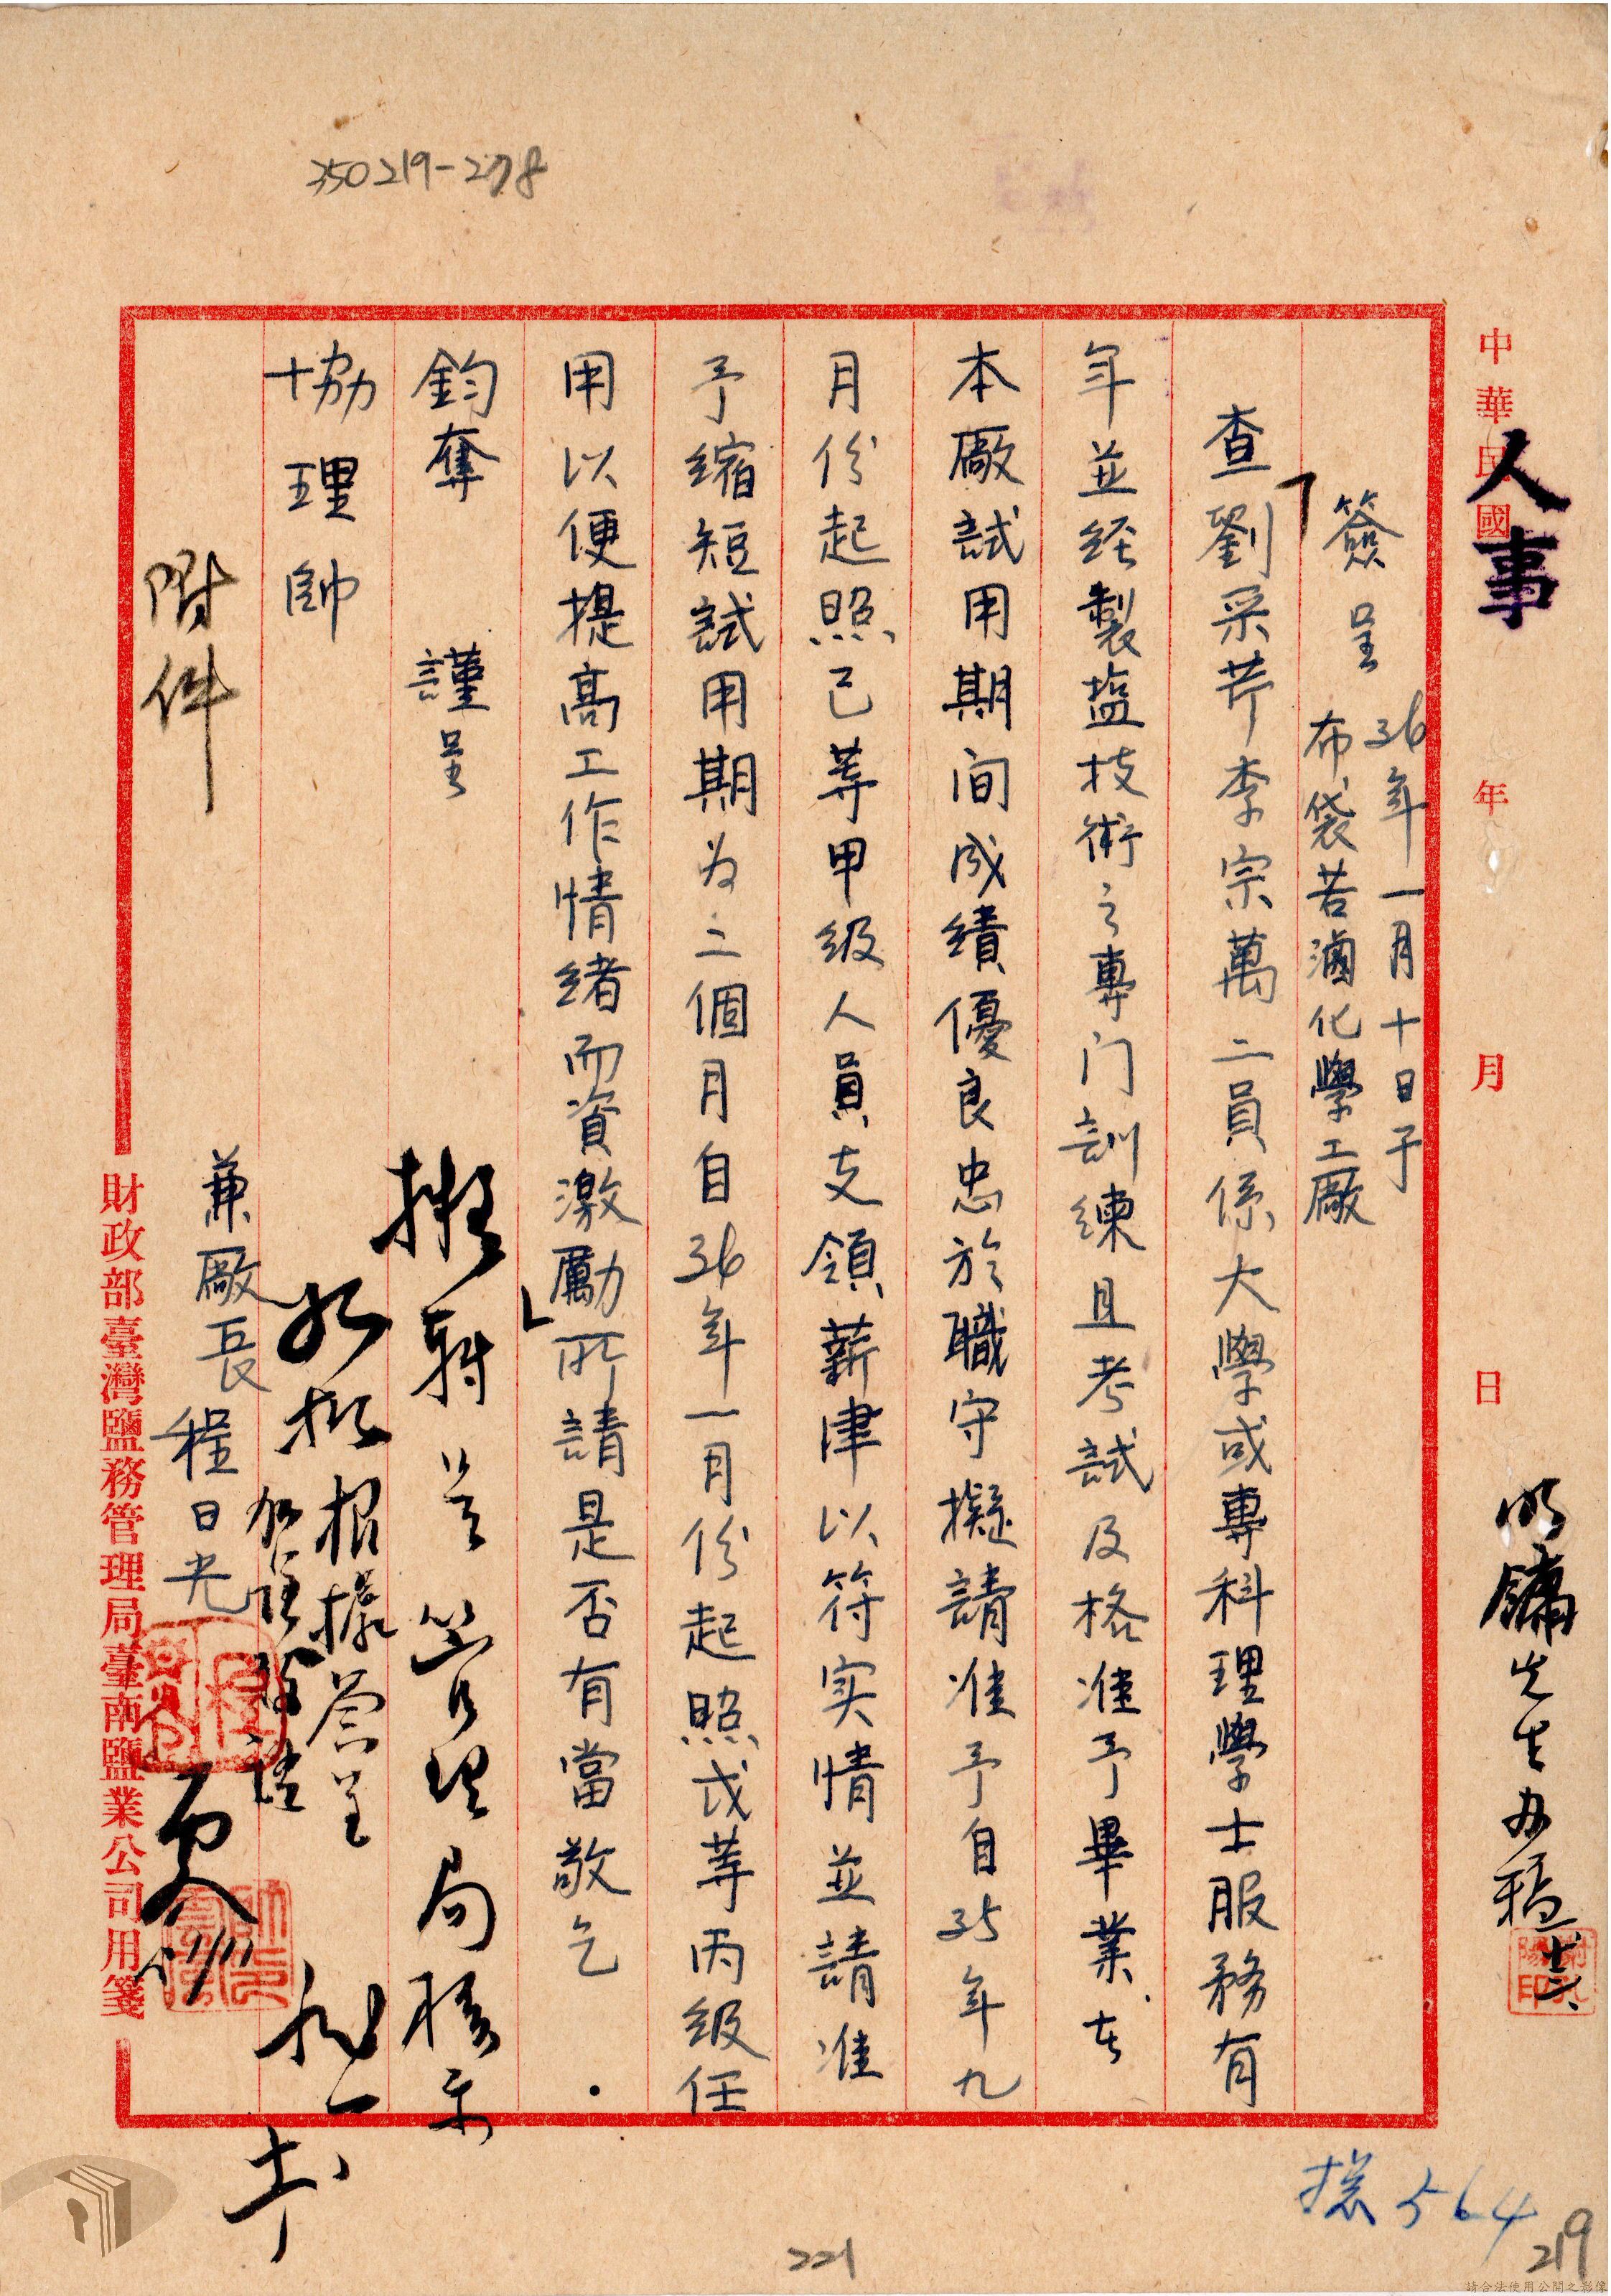 350219-278
中華民國 年 月 日
人事
簽呈 36年一月十日于
布袋苦滷化學工廠
查劉采芹李宗萬二員係大學或專科理學士服務有
年並経製塩技術之專门訓練且考試及格准予畢業在
本廠試用期间成績優良忠於職守擬請准予自35年九
月份起照己等甲級人員支領薪津以符实情並請准
予縮短試用期为二個月自36年一月份起照戊等丙級任
用以便提高工作情緒而資激勵所請是否有當敬乞
鈞奪 謹呈
協理帥
附件
兼廠長程日光
擬轉并管理局核示
根據簽呈
先生办稿
財政部臺灣鹽務管理局臺南鹽業公司用箋
564
219
221
請合法使用公開之影像